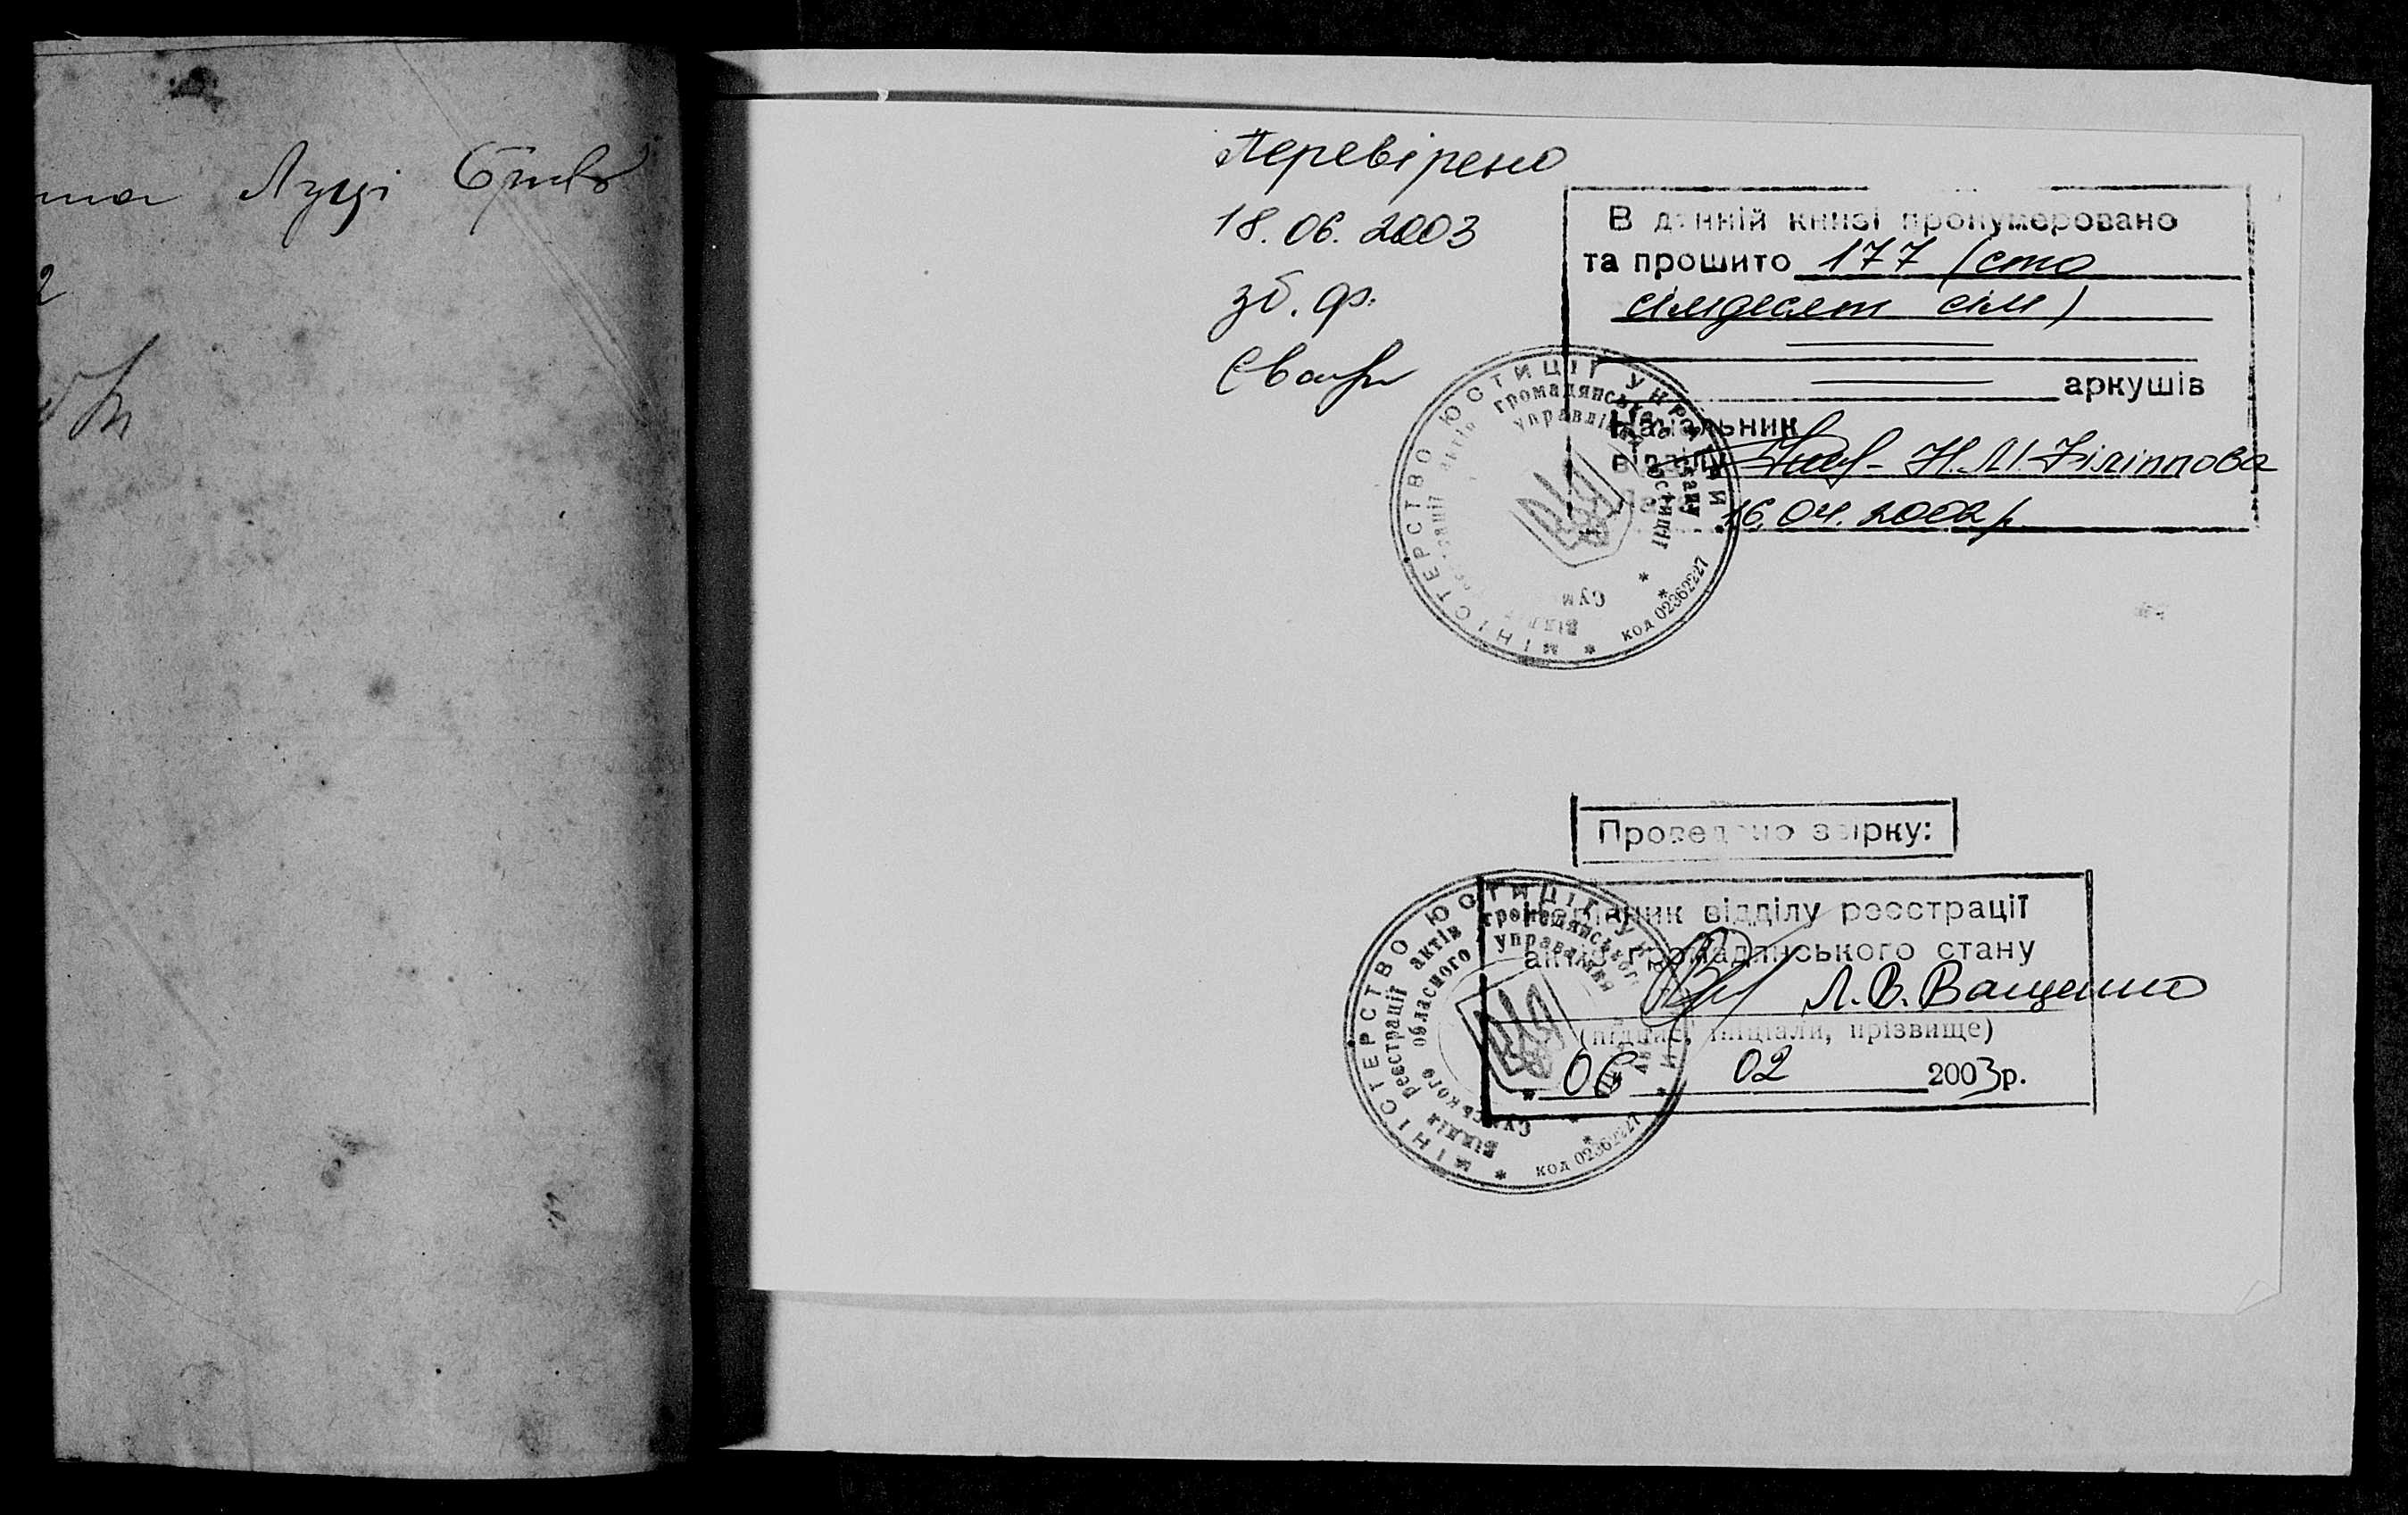 Перевірено
18.06.2003
зб. ф.
В данній книзі пронумеровано
та прошито 177 (сто
сімдесят сім)
аркушів
Начальник
відділу Н.М. Філіппова
16.04.2002р
МІНІСТЕРСТВО ЮСТИЦІЇ УКРАЇНИ
громадянського стану
управління юстиції
код 02362227
Проведено звірку:
Керівник відділу реєстрації
актів громадянського стану
Л.В. Ващенко
(підпис, ініціали, прізвище)
06 02 2003р.
МІНІСТЕРСТВО ЮСТИЦІЇ УКРАЇНИ
Відділ реєстрації актів громадянського
Сумського обласного управління
код 02362227